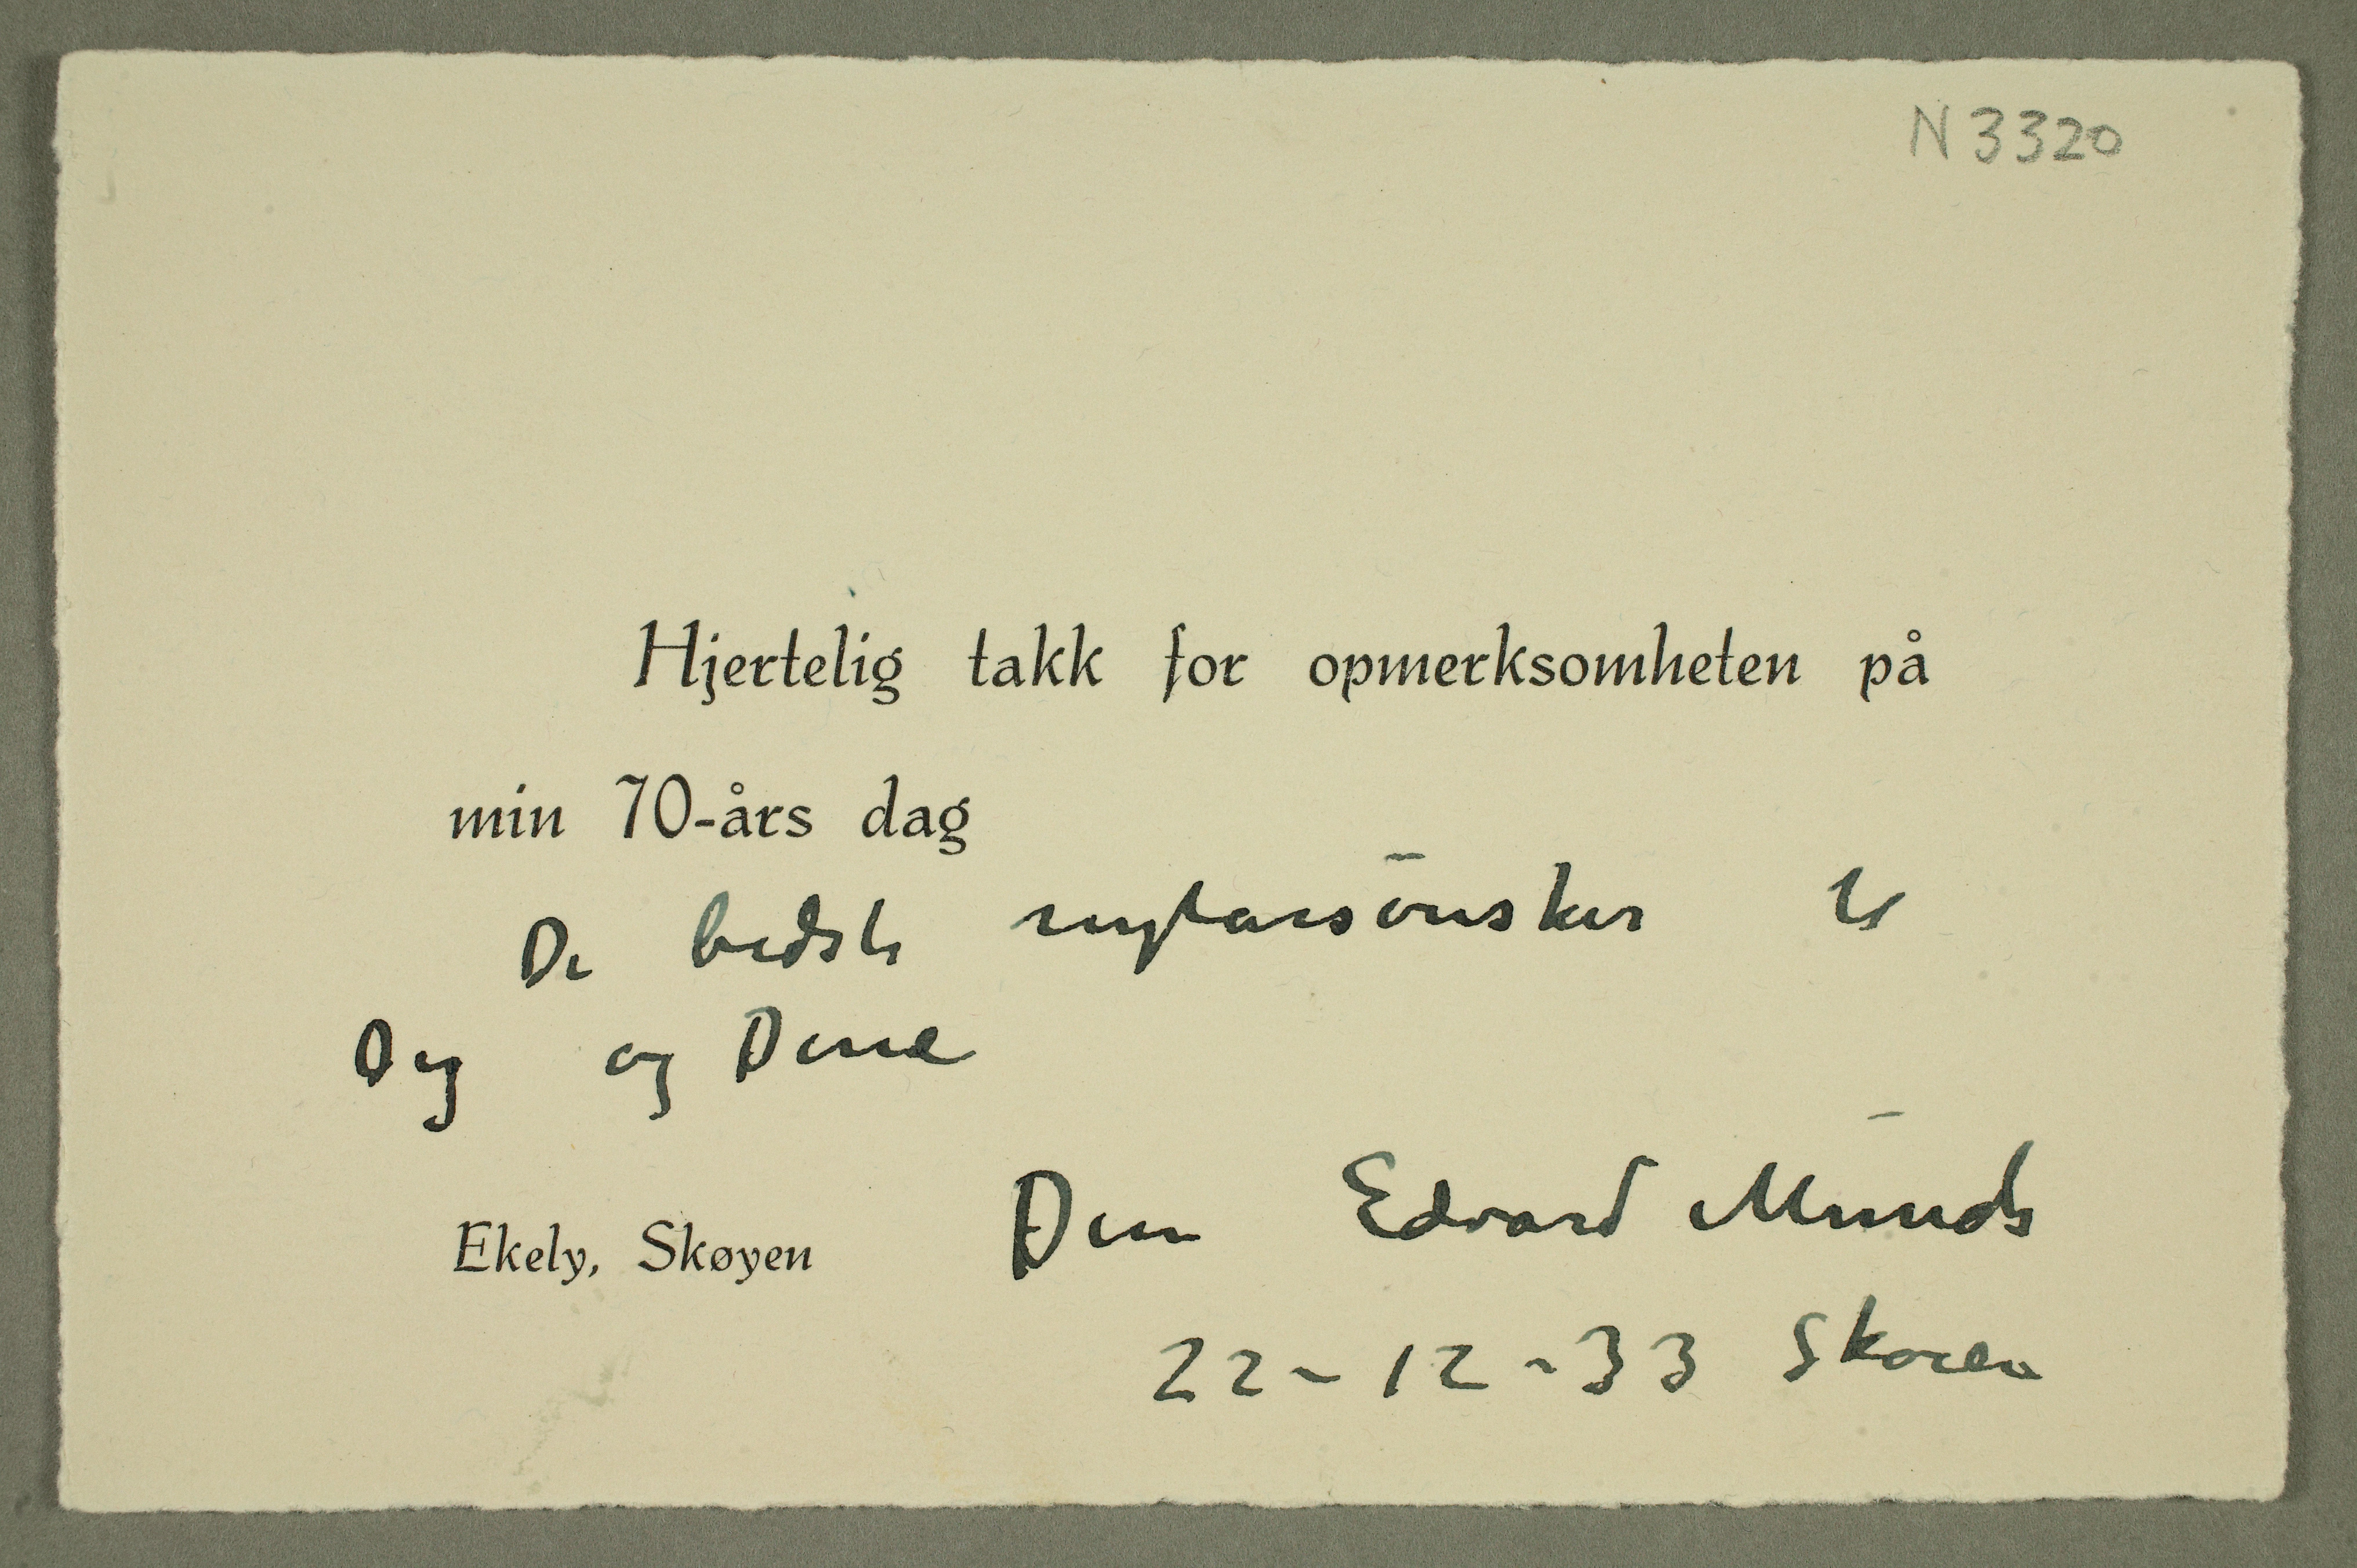 N 3320
Hjertelig takk for opmerksomheten på
min 70-års dag
De bedste nytarsønsker til
Deg og Dine
Ekely, Skøyen
Din Edvard Munch
22-12-33 Skøien